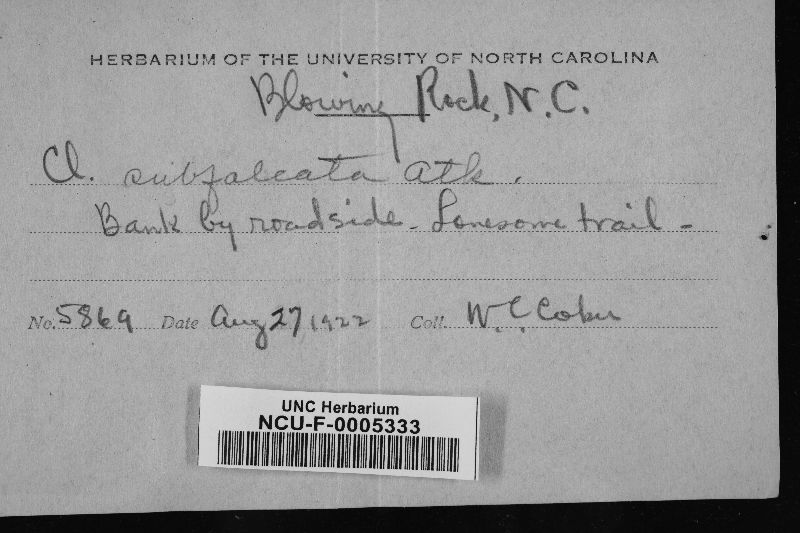 HERBARIUM OF THE UNIVERSITY OF NORTH CAROLINA
Blowing Rock, N.C.
Cl. subfalcata Atk.
Bank by roadside - Lonesome trail -
No. 5869 Date Aug 27, 1922 Coll. W.C. Coker
UNC Herbarium
NCU-F-0005333